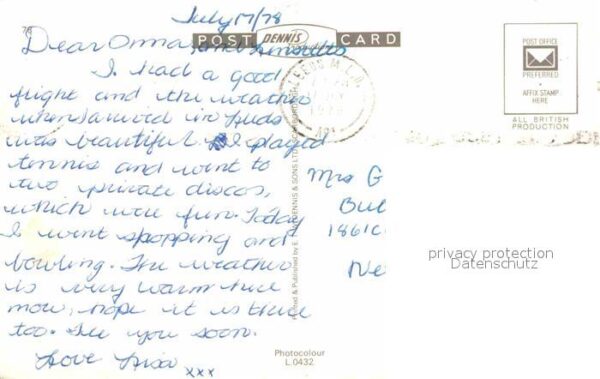 July 17/78
Dear Omma, and
POST DENNIS CARD
I had a good
flight and the weather
when I arrived in Leeds
was beautiful. I played
tennis and went to
two private discos,
which were fun. Today
I went shopping and
bowling. The weather
is very warm here
now, hope it is there
too. See you soon.
Love Lisa
xxx
Printed & Published by E. T. W. DENNIS & SONS LTD
Photocolour
L.0432
LEEDS
1978
POST OFFICE
PREFERRED
AFFIX STAMP
HERE
ALL BRITISH
PRODUCTION
Mrs G
1861
Ne
privacy protection
Datenschutz